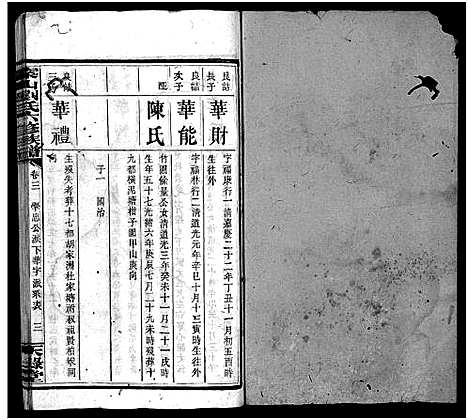 良誥長子
華財
字福康行一清嘉慶二十二年丁丑十一月初五酉時
生往外
良誥次子
華能
字福林行二清道光元年辛巳十月十三寅時生往外
配
陳氏
竹園餘量公女清道光三年癸未十一月二十一戌時
生年五十七光緒六年庚辰七月二十九未時殁葬十
九都橫泥塘柑子園甲山庚向
子一 國治
華禮
生殁失考葬十七都胡家洲杜家塝祔叔祖賢柏
卷三 學忠公派下華字派系表 三